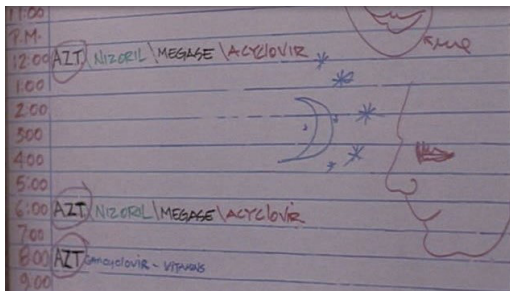 11:00
P.M.
12:00 AZT \ NIZORIL \ MEGASE \ ACYCLOVIR
1:00
2:00
3:00
4:00
5:00
6:00 AZT \ NIZORIL \ MEGASE \ ACYCLOVIR
7:00
8:00 AZT GANCYCLOVIR - VITAMINS
9:00